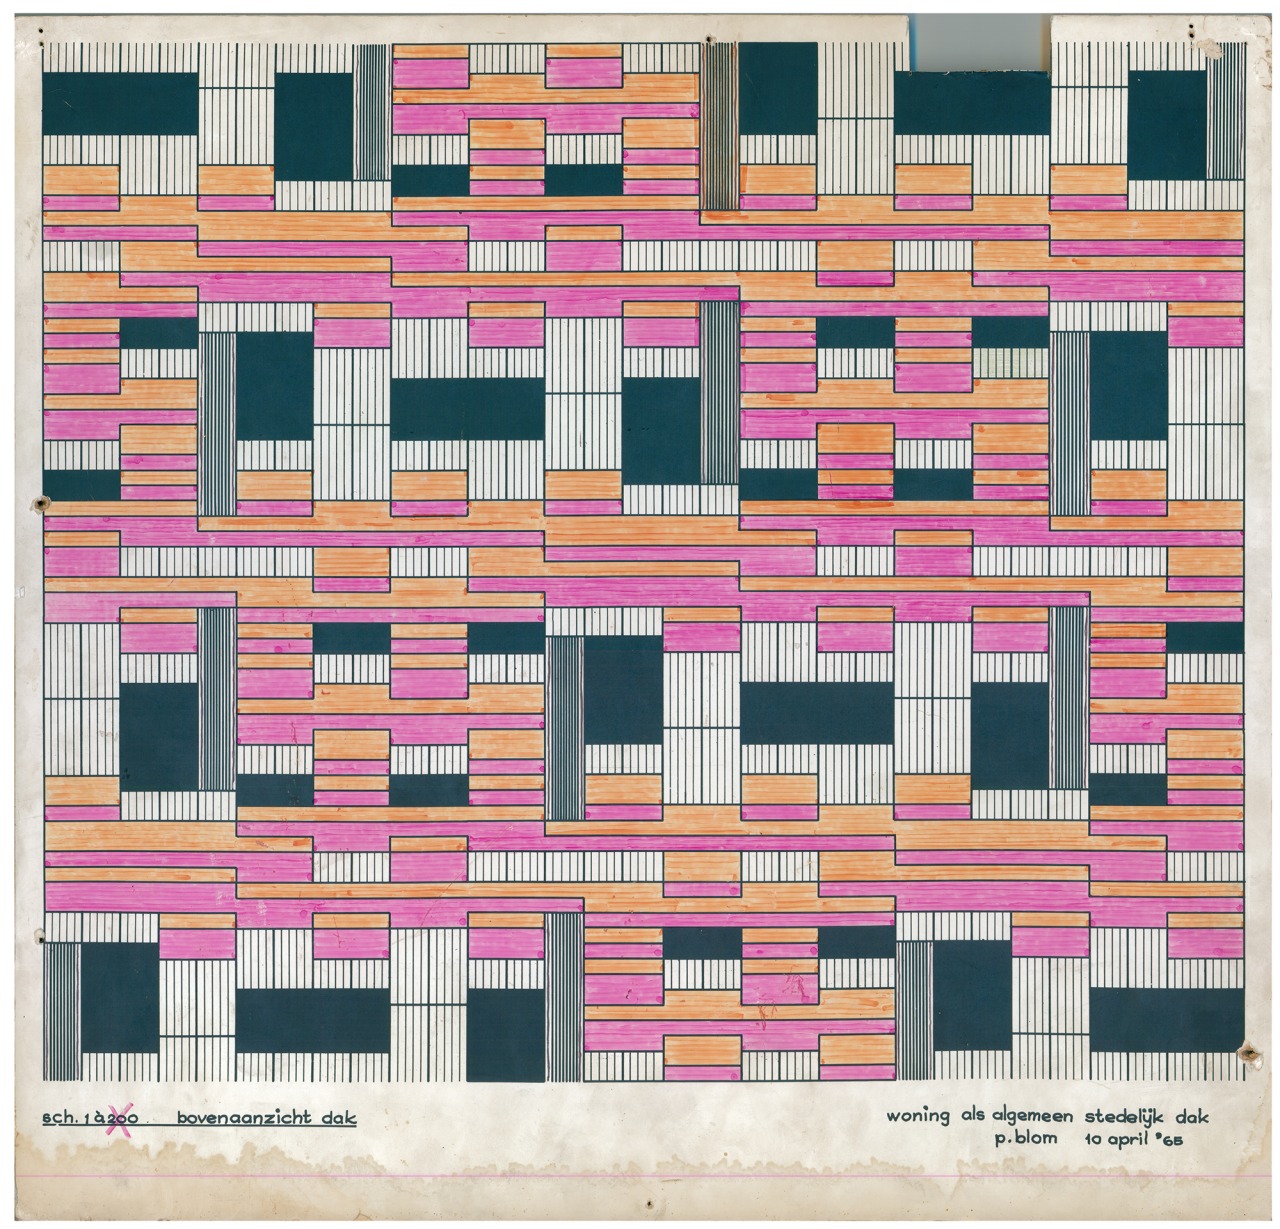 sch. 1 à 200 bovenaanzicht dak
woning als algemeen stedelijk dak
p. blom 10 april '65